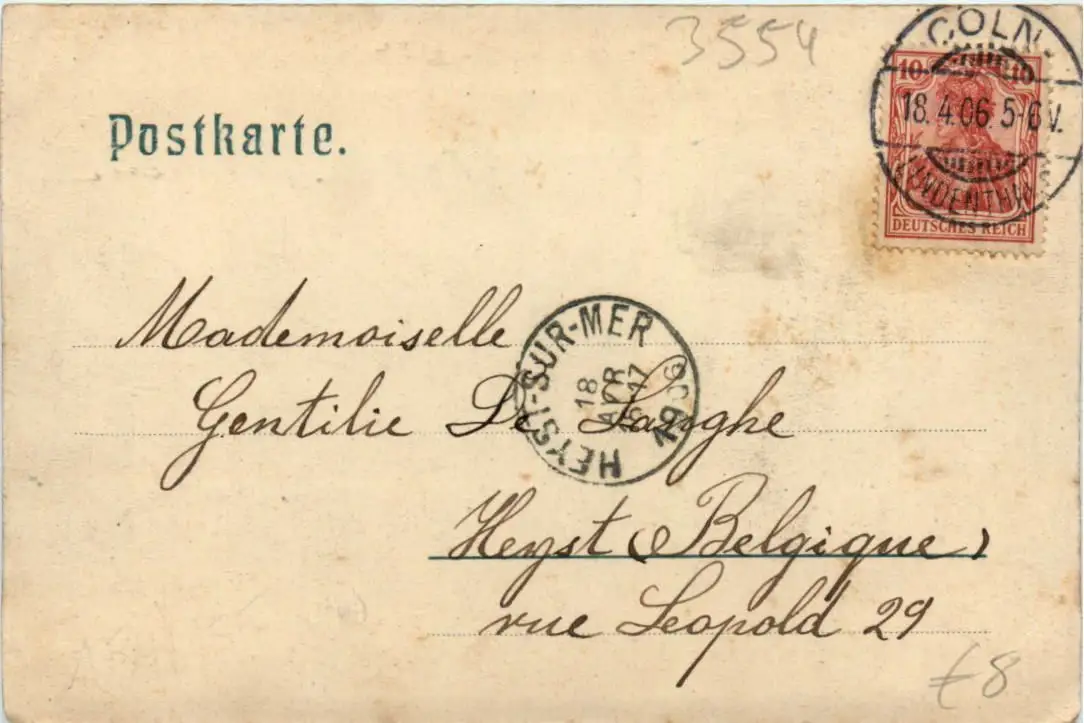 3554
Postkarte.
CÖLN-
10 10
18.4.06. 5-6 V.
DEUTSCHES REICH
HEYST-SUR-MER
18
AVR
16-17
1906
Mademoiselle
Gentilie De Langhe
Heyst (Belgique)
rue Leopold 29
£8